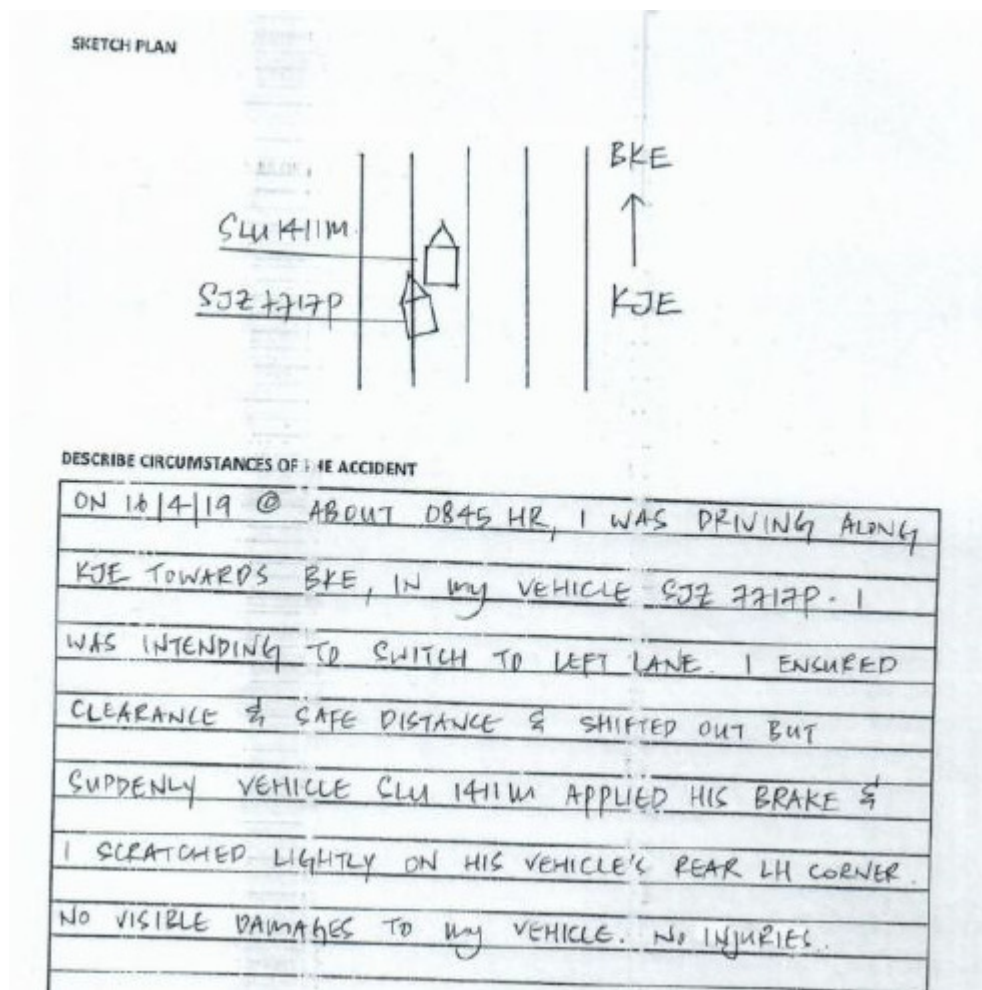 SKETCH PLAN
BKE
SLU 1411M
SJZ 7717P
KJE
DESCRIBE CIRCUMSTANCES OF THE ACCIDENT
ON 16/4/19 @ ABOUT 0845 HR, I WAS DRIVING ALONG
KJE TOWARDS BKE, IN MY VEHICLE SJZ 7717P. I
WAS INTENDING TO SWITCH TO LEFT LANE. I ENSURED
CLEARANCE & SAFE DISTANCE & SHIFTED OUT BUT
SUDDENLY VEHICLE SLU 1411M APPLIED HIS BRAKE &
I SCRATCHED LIGHTLY ON HIS VEHICLE'S REAR LH CORNER.
NO VISIBLE DAMAGES TO MY VEHICLE. NO INJURIES.